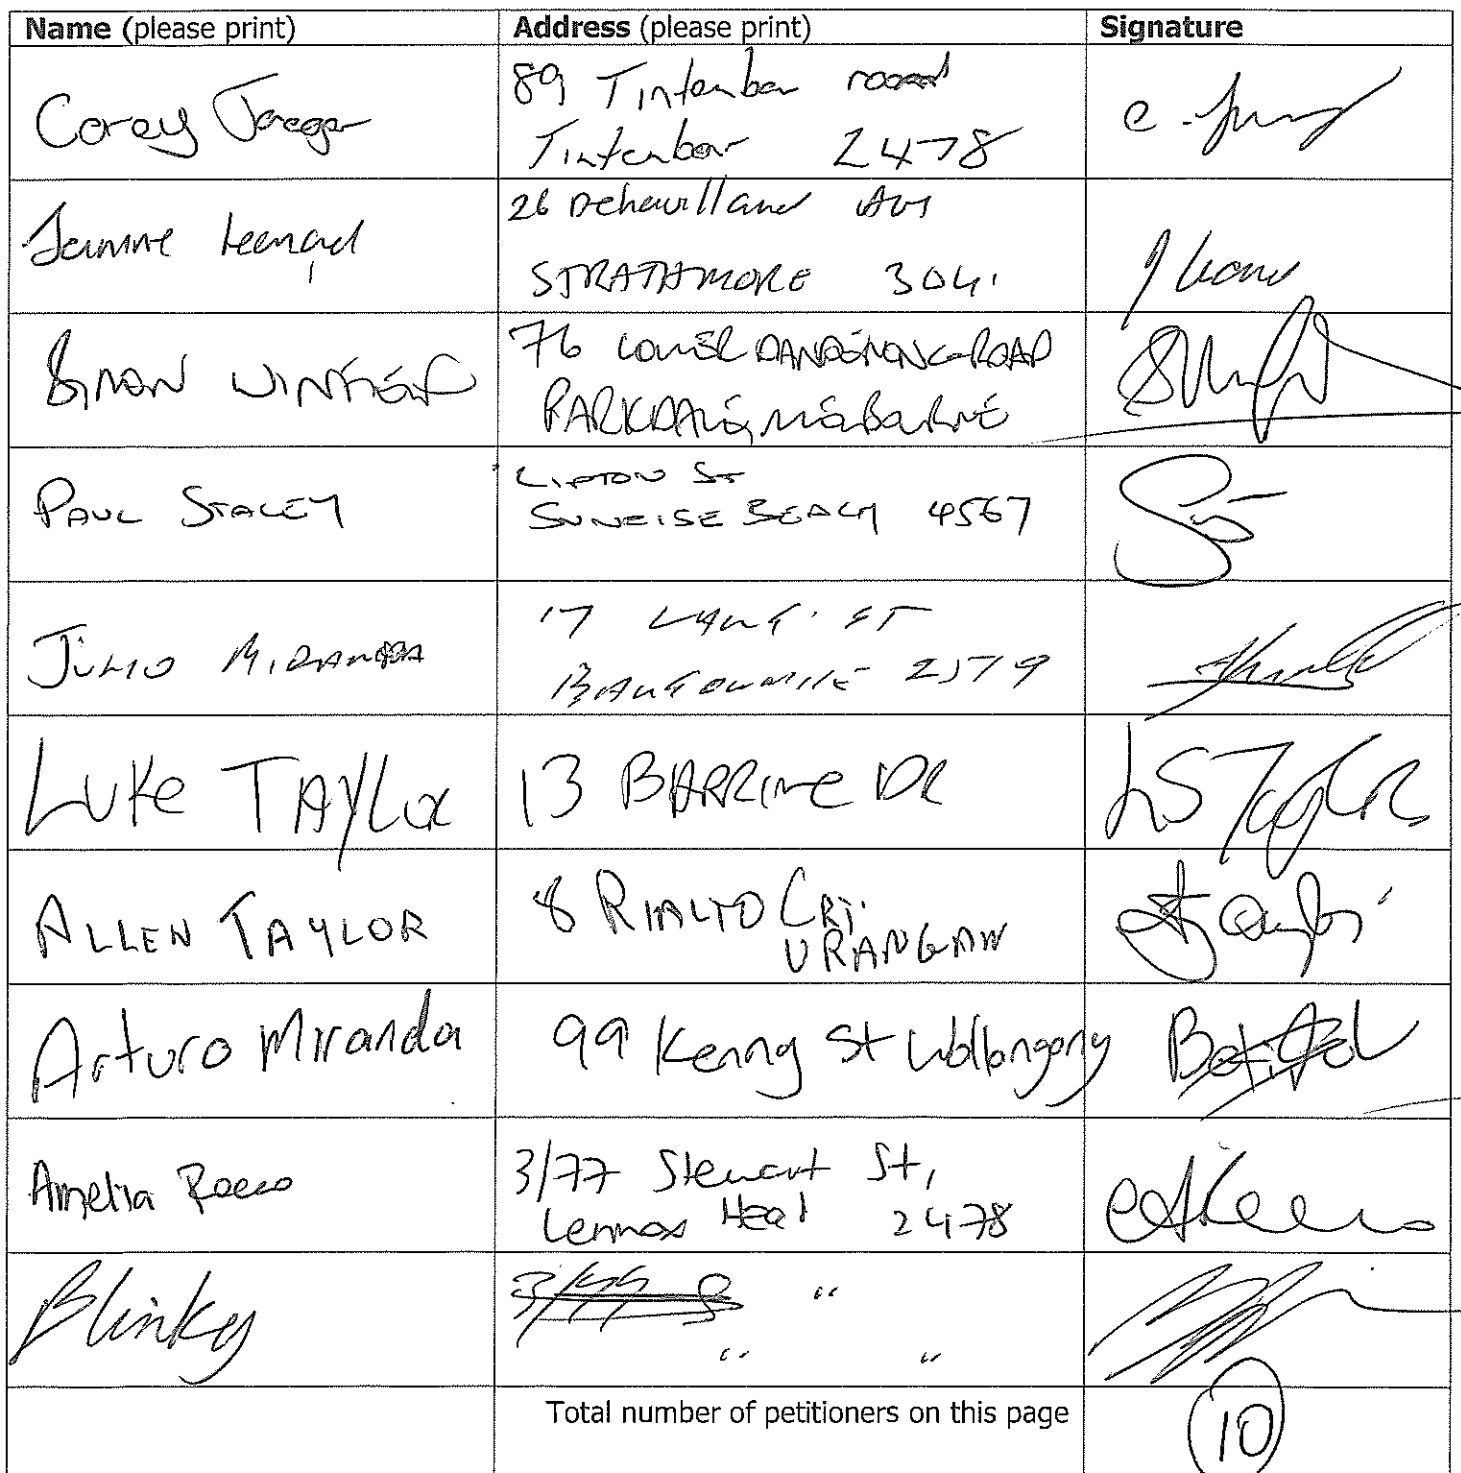 Name (please print) Address (please print) Signature
Corey Jaeger
89 Tintenbar road
Tintenbar 2478
Leonard
26 Dehavilland Ave
STRATHMORE 3041
SIMON WINFIELD
76 LOWER DANDENONG ROAD
PARKDALE, MELBOURNE
PAUL STACEY
LIPTON ST
SUNRISE BEACH 4567
JULIO MIRANDA
17 ST
2579
LUKE TAYLOR
13 BARRINE DR
LS Taylor
ALLEN TAYLOR
8 RIALTO CRT.
URANGAN
Arturo Miranda
99 Kenny St Wollongong
Amelia
3/77 Stewart St,
Lennox Head 2478
Blinky
"
" "
Total number of petitioners on this page
10